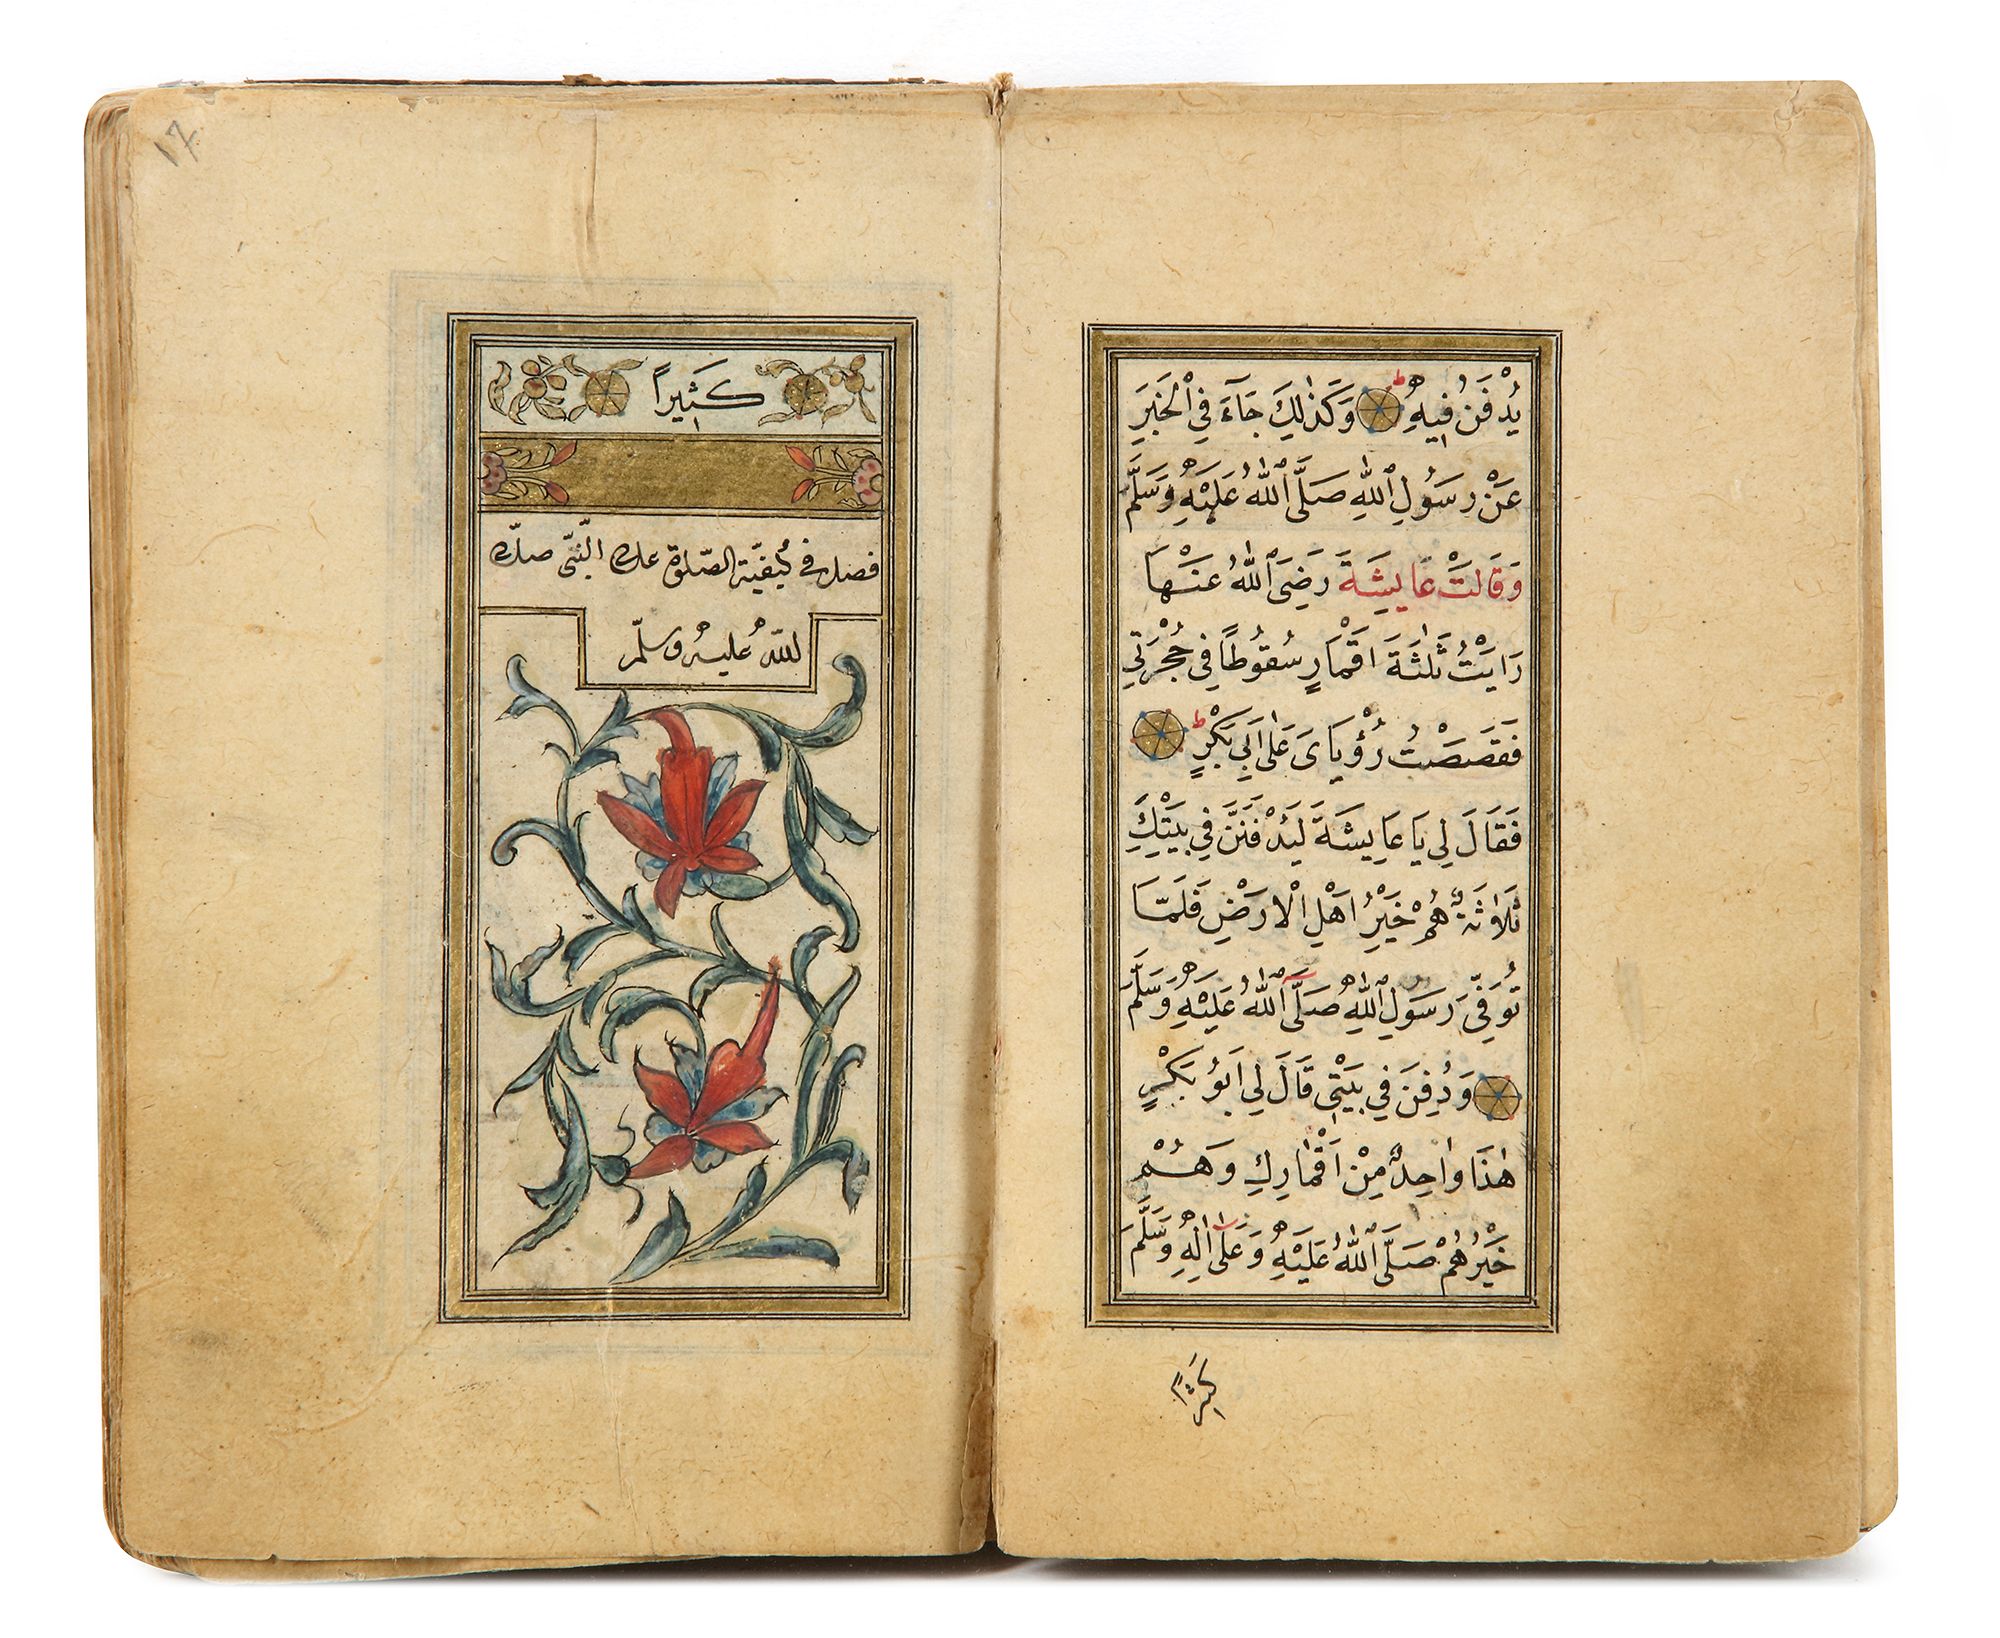 يُدْفَنُ فِيهِ ط وَكَذٰلِكَ جَآءَ فِي الْخَبَرِ
عَنْ رَسُولِ اللّٰهِ صَلَّى اللّٰهُ عَلَيْهِ وَسَلَّمَ
وَقَالَتْ عَايِشَةُ رَضِيَ اللّٰهُ عَنْهَا
رَايْتُ ثَلٰثَةَ اَقْمَارٍ سُقُوطًا فِي حُجْرَتِي
فَقَصَصْتُ رُؤْيَايَ عَلٰى اَبِي بَكْرٍ ط
فَقَالَ لِي يَا عَايِشَةُ لَيُدْفَنَنَّ فِي بَيْتِكِ
ثَلَاثَةٌ هُمْ خَيْرُ اَهْلِ الْاَرْضِ فَلَمَّا
تُوُفِّيَ رَسُولُ اللّٰهِ صَلَّى اللّٰهُ عَلَيْهِ وَسَلَّمَ
وَدُفِنَ فِي بَيْتِي قَالَ لِي اَبُو بَكْرٍ
هٰذَا وَاحِدٌ مِنْ اَقْمَارِكِ وَهُمْ
خَيْرُهُمْ صَلَّى اللّٰهُ عَلَيْهِ وَعَلٰى اٰلِهِ وَسَلَّمَ
كَثِيرًا
١٧
كَثِيرًا
فصل في كيفيّة الصّلوة على النّبيّ صلى
اللّٰه عليه وسلّم